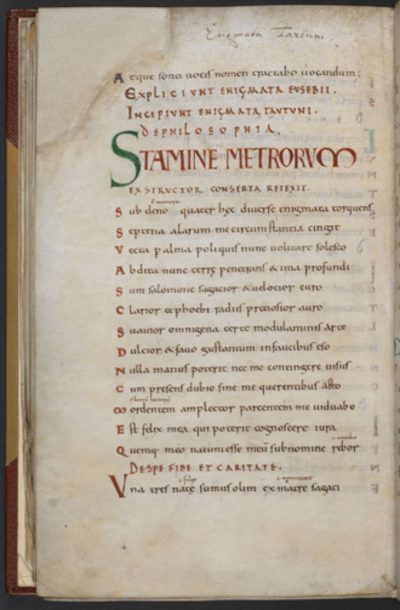 Enigmata Tautuni.
Atque sono uocis nomen tractabo uocandum;
EXPLICIUNT ENIGMATA EUSEBII.
INCIPIUNT ENIGMATA TAUTUNI.
DE PHILOSOPHIA.
STAMINE METRORUM
EXSTRUCTOR CONSERTA RETEXIT.
Sub deno quater hęc diuerse enigmata torquens
Septena alarum me circumstantia cingit
Vecta palma poli quis nunc uolitare solesco
Abdita nunc terrę penetrans & ima profundi
Sum salomone sagacior & uelocior euro
Clarior & phoebi radiis pretiosior auro
Suauior omnigena certe modulaminis arte
Dulcior & fauo gustantum in faucibus eso
Nulla manus poterit nec me contingere uisus
Cum presens dubio sine me querentibus asto
Mordentem amplector parcentem me uiduabo
Est felix mea qui poterit cognoscere iura
Quemque meo natum esse meū sub nomine rebor
DE SPE FIDE ET CARITATE.
Una tres natę sumus olim ex matre sagaci